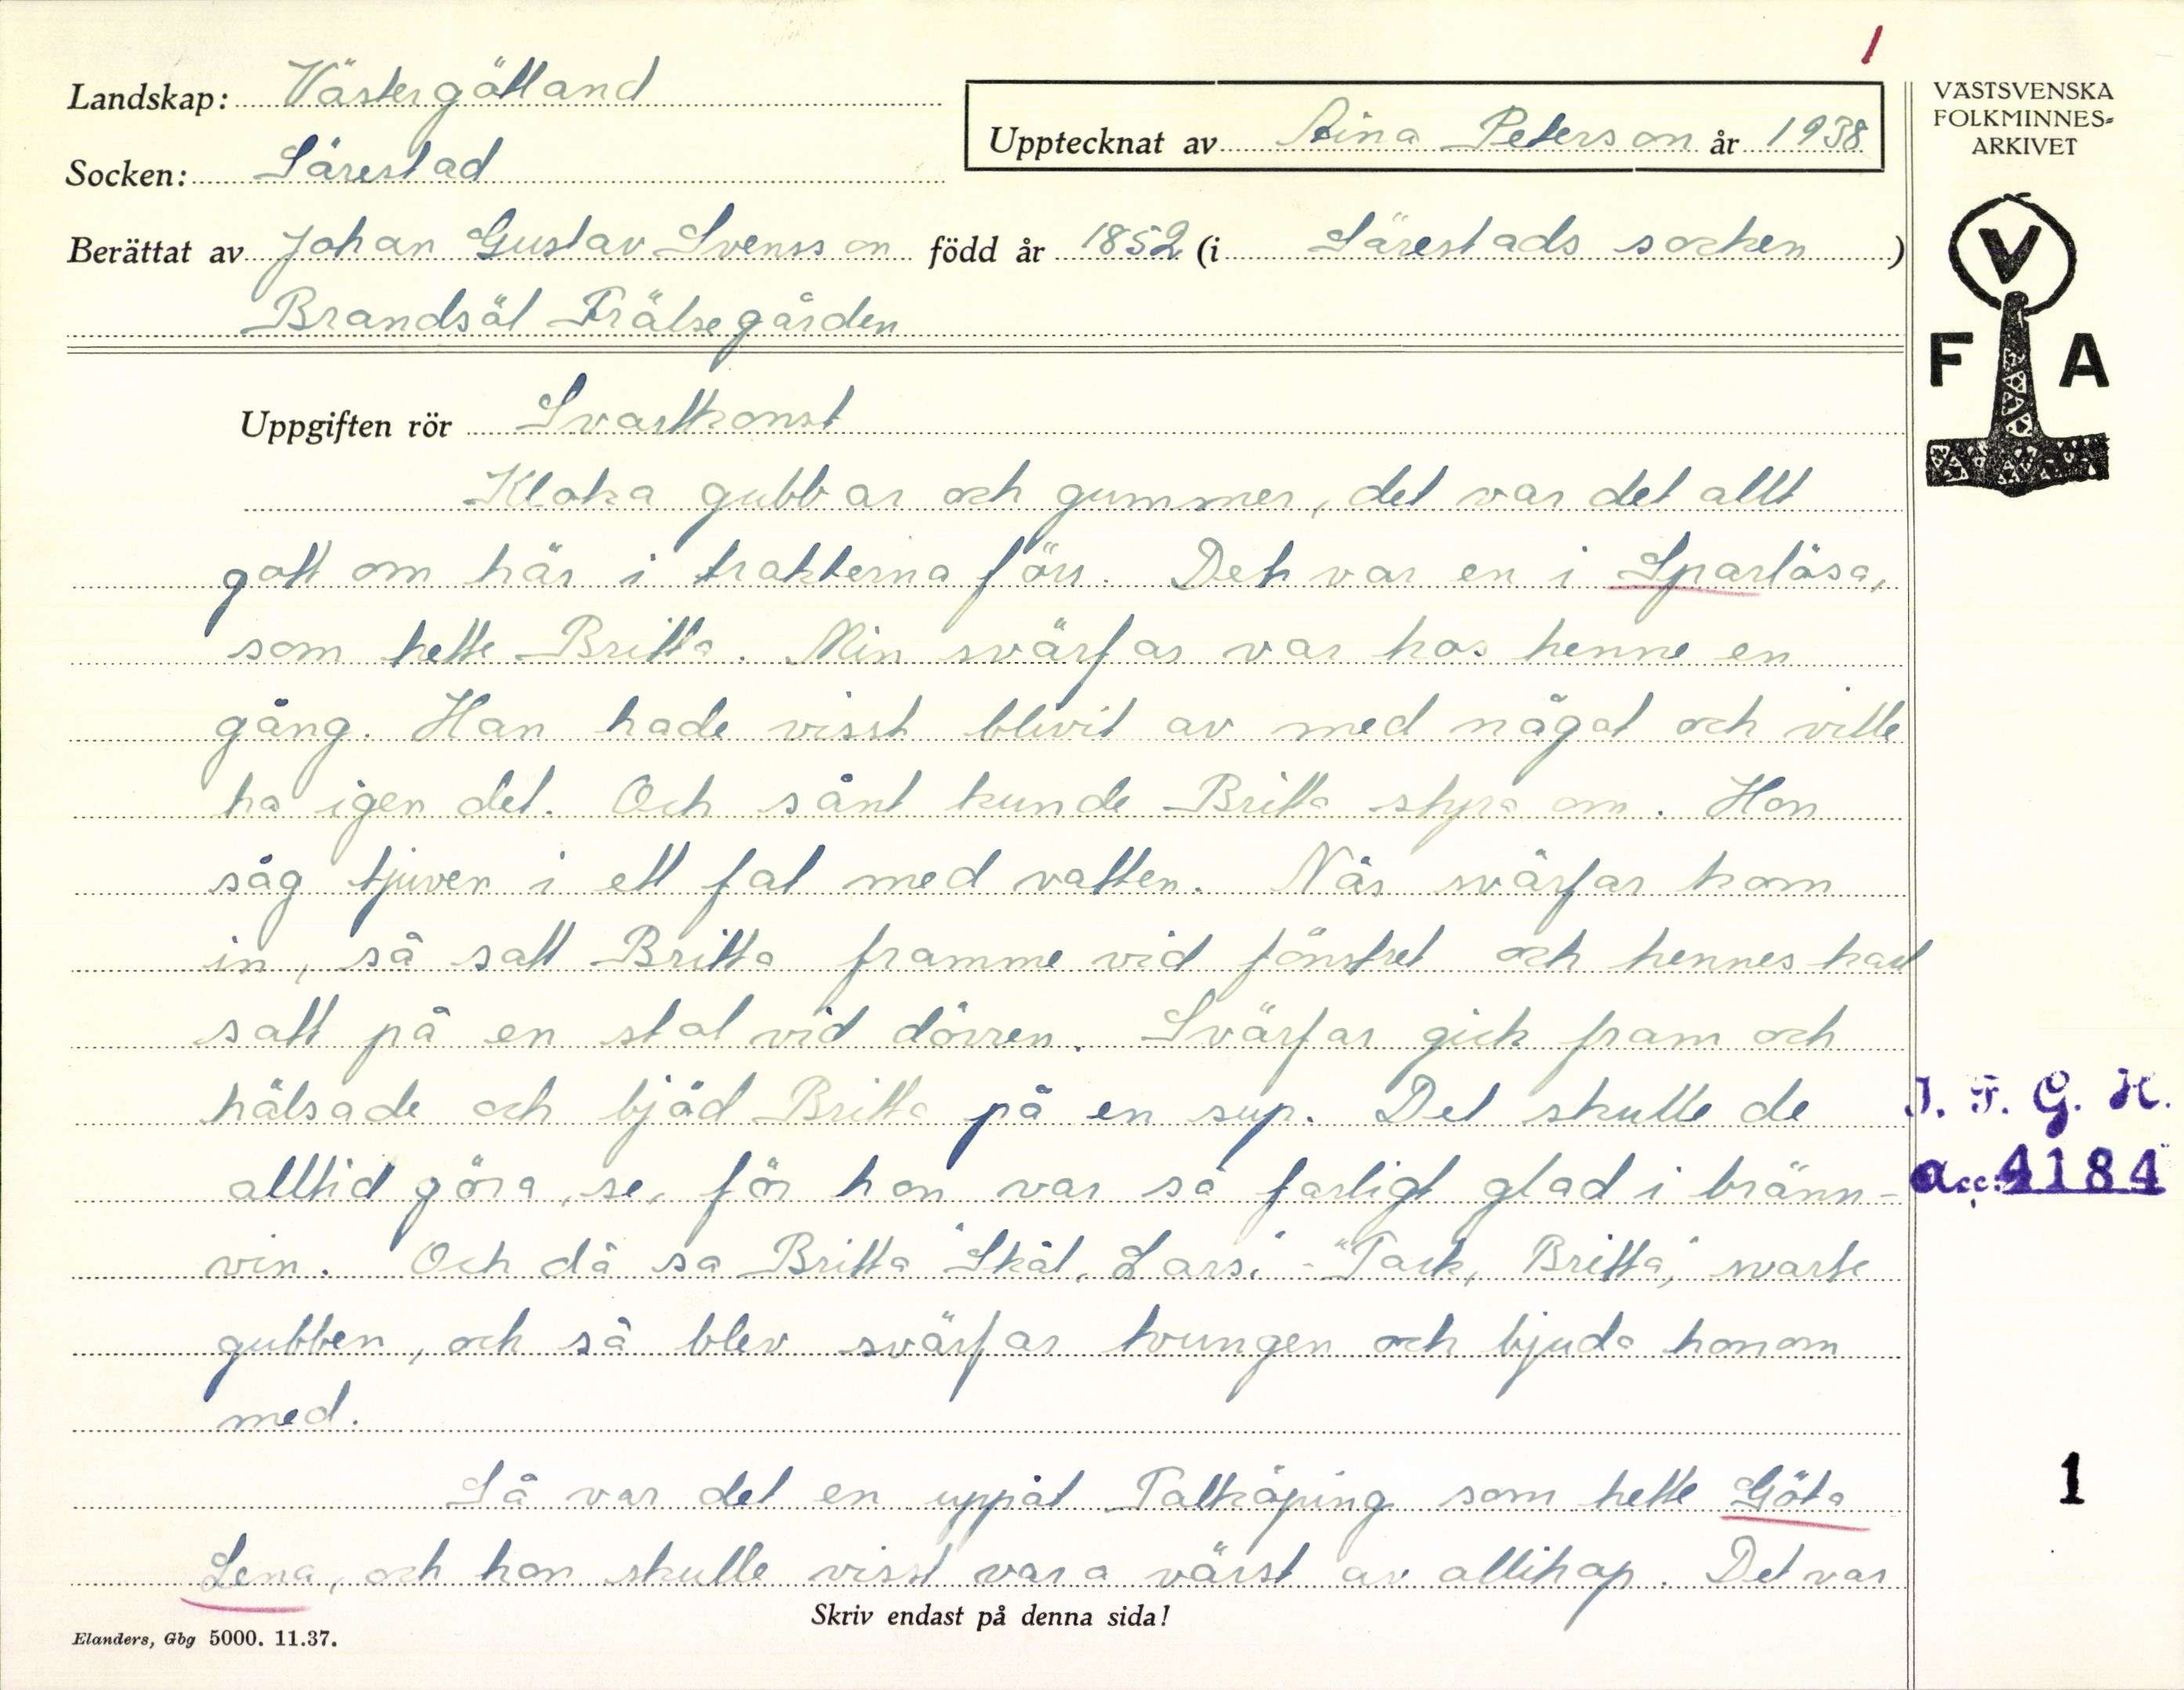 1
Landskap: Västergötland
Socken: Särestad
Upptecknat av Aina Peterson år 1938
VÄSTSVENSKA
FOLKMINNES-
ARKIVET
Berättat av Johan Gustav Svensson född år 1852 (i Särestads socken)
Brandsäl Frälsegården
V
F A
Uppgiften rör Svartkonst
Kloka gubbar och gummer, det var det allt
gott om här i trakterna förr. Det var en i Sparlösa,
som hette Britta. Min svärfar var hos henne en
gång. Han hade visst blivit av med något och ville
ha igen det. Och sånt kunde Britta styra om. Hon
såg tjuven i ett fat med vatten. När svärfar kom
in, så satt Britta framme vid fönstret och hennes karl
satt på en stol vid dörren. Svärfar gick fram och
hälsade och bjöd Britta på en sup. Det skulle de
alltid göra, se, för hon var så farligt glad i bränn-
vin. Och då sa Britta "Skål, Lars." - "Tack, Britta," svarte
gubben, och så blev svärfar tvungen och bjuda honom
med.
Så var det en uppåt Falköping som hette Göta
Lena, och hon skulle visst vara värst av allihop. Det var
I. F. G. H.
acc: 4184
1
Skriv endast på denna sida!
Elanders, Gbg 5000. 11.37.